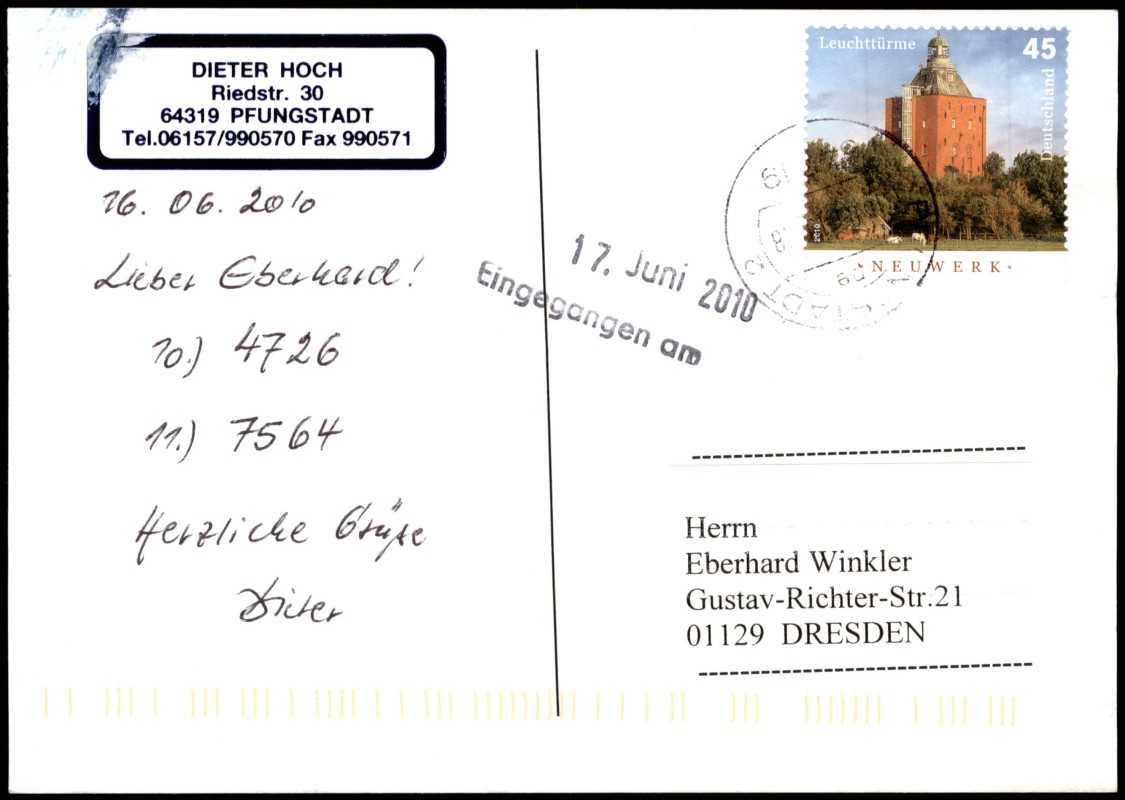 DIETER HOCH
Riedstr. 30
64319 PFUNGSTADT
Tel.06157/990570 Fax 990571
16. 06. 2010
Lieber Eberhard!
10.) 4726
11.) 7564
Herzliche Grüße
Dieter
17. Juni 2010
Eingegangen am
Leuchttürme 45
Deutschland
2010
NEUWERK
STADT 2
Herrn
Eberhard Winkler
Gustav-Richter-Str.21
01129 DRESDEN